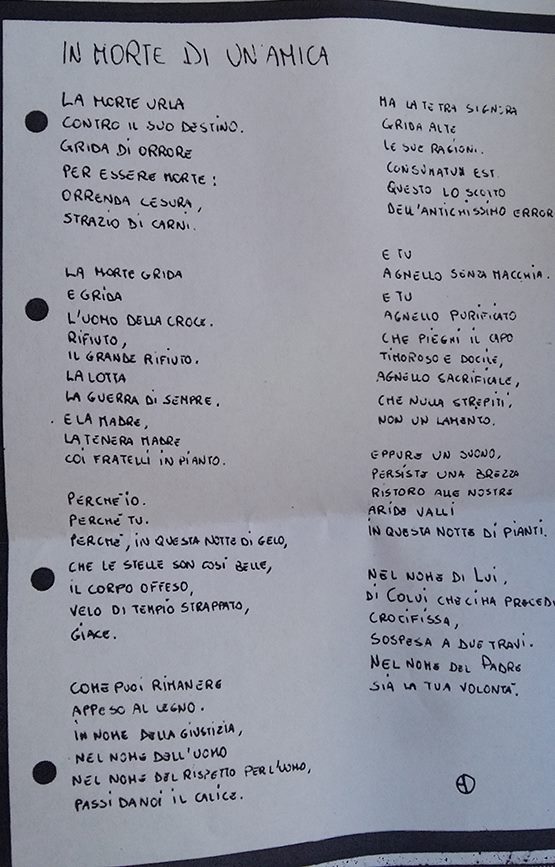 IN MORTE DI UN'AMICA
LA MORTE URLA
CONTRO IL SUO DESTINO.
GRIDA DI ORRORE
PER ESSERE MORTE:
ORRENDA CESURA,
STRAZIO DI CARNI.
LA MORTE GRIDA
E GRIDA
L'UOMO DELLA CROCE.
RIFIUTO,
IL GRANDE RIFIUTO.
LA LOTTA
LA GUERRA DI SEMPRE.
E LA MADRE,
LA TENERA MADRE
COI FRATELLI IN PIANTO.
PERCHÉ IO.
PERCHÉ TU.
PERCHÉ, IN QUESTA NOTTE DI GELO,
CHE LE STELLE SON COSÌ BELLE,
IL CORPO OFFESO,
VELO DI TEMPIO STRAPPATO,
GIACE.
COME PUOI RIMANERE
APPESO AL LEGNO.
IN NOME DELLA GIUSTIZIA,
NEL NOME DELL'UOMO
NEL NOME DEL RISPETTO PER L'UOMO,
PASSI DA NOI IL CALICE.
MA LA TETRA SIGNORA
GRIDA ALTE
LE SUE RAGIONI.
CONSUMATUM EST.
QUESTO LO SCOTTO
DELL'ANTICHISSIMO ERROR
E TU
AGNELLO SENZA MACCHIA.
E TU
AGNELLO PURIFICATO
CHE PIEGHI IL CAPO
TIMOROSO E DOCILE,
AGNELLO SACRIFICALE,
CHE NULLA STREPITI,
NON UN LAMENTO.
EPPURE UN SUONO,
PERSISTE UNA BREZZA
RISTORO ALLE NOSTRE
ARIDE VALLI
IN QUESTA NOTTE DI PIANTI.
NEL NOME DI LUI,
DI COLUI CHE CI HA PRECEDU
CROCIFISSA,
SOSPESA A DUE TRAVI.
NEL NOME DEL PADRE
SIA LA TUA VOLONTÀ.